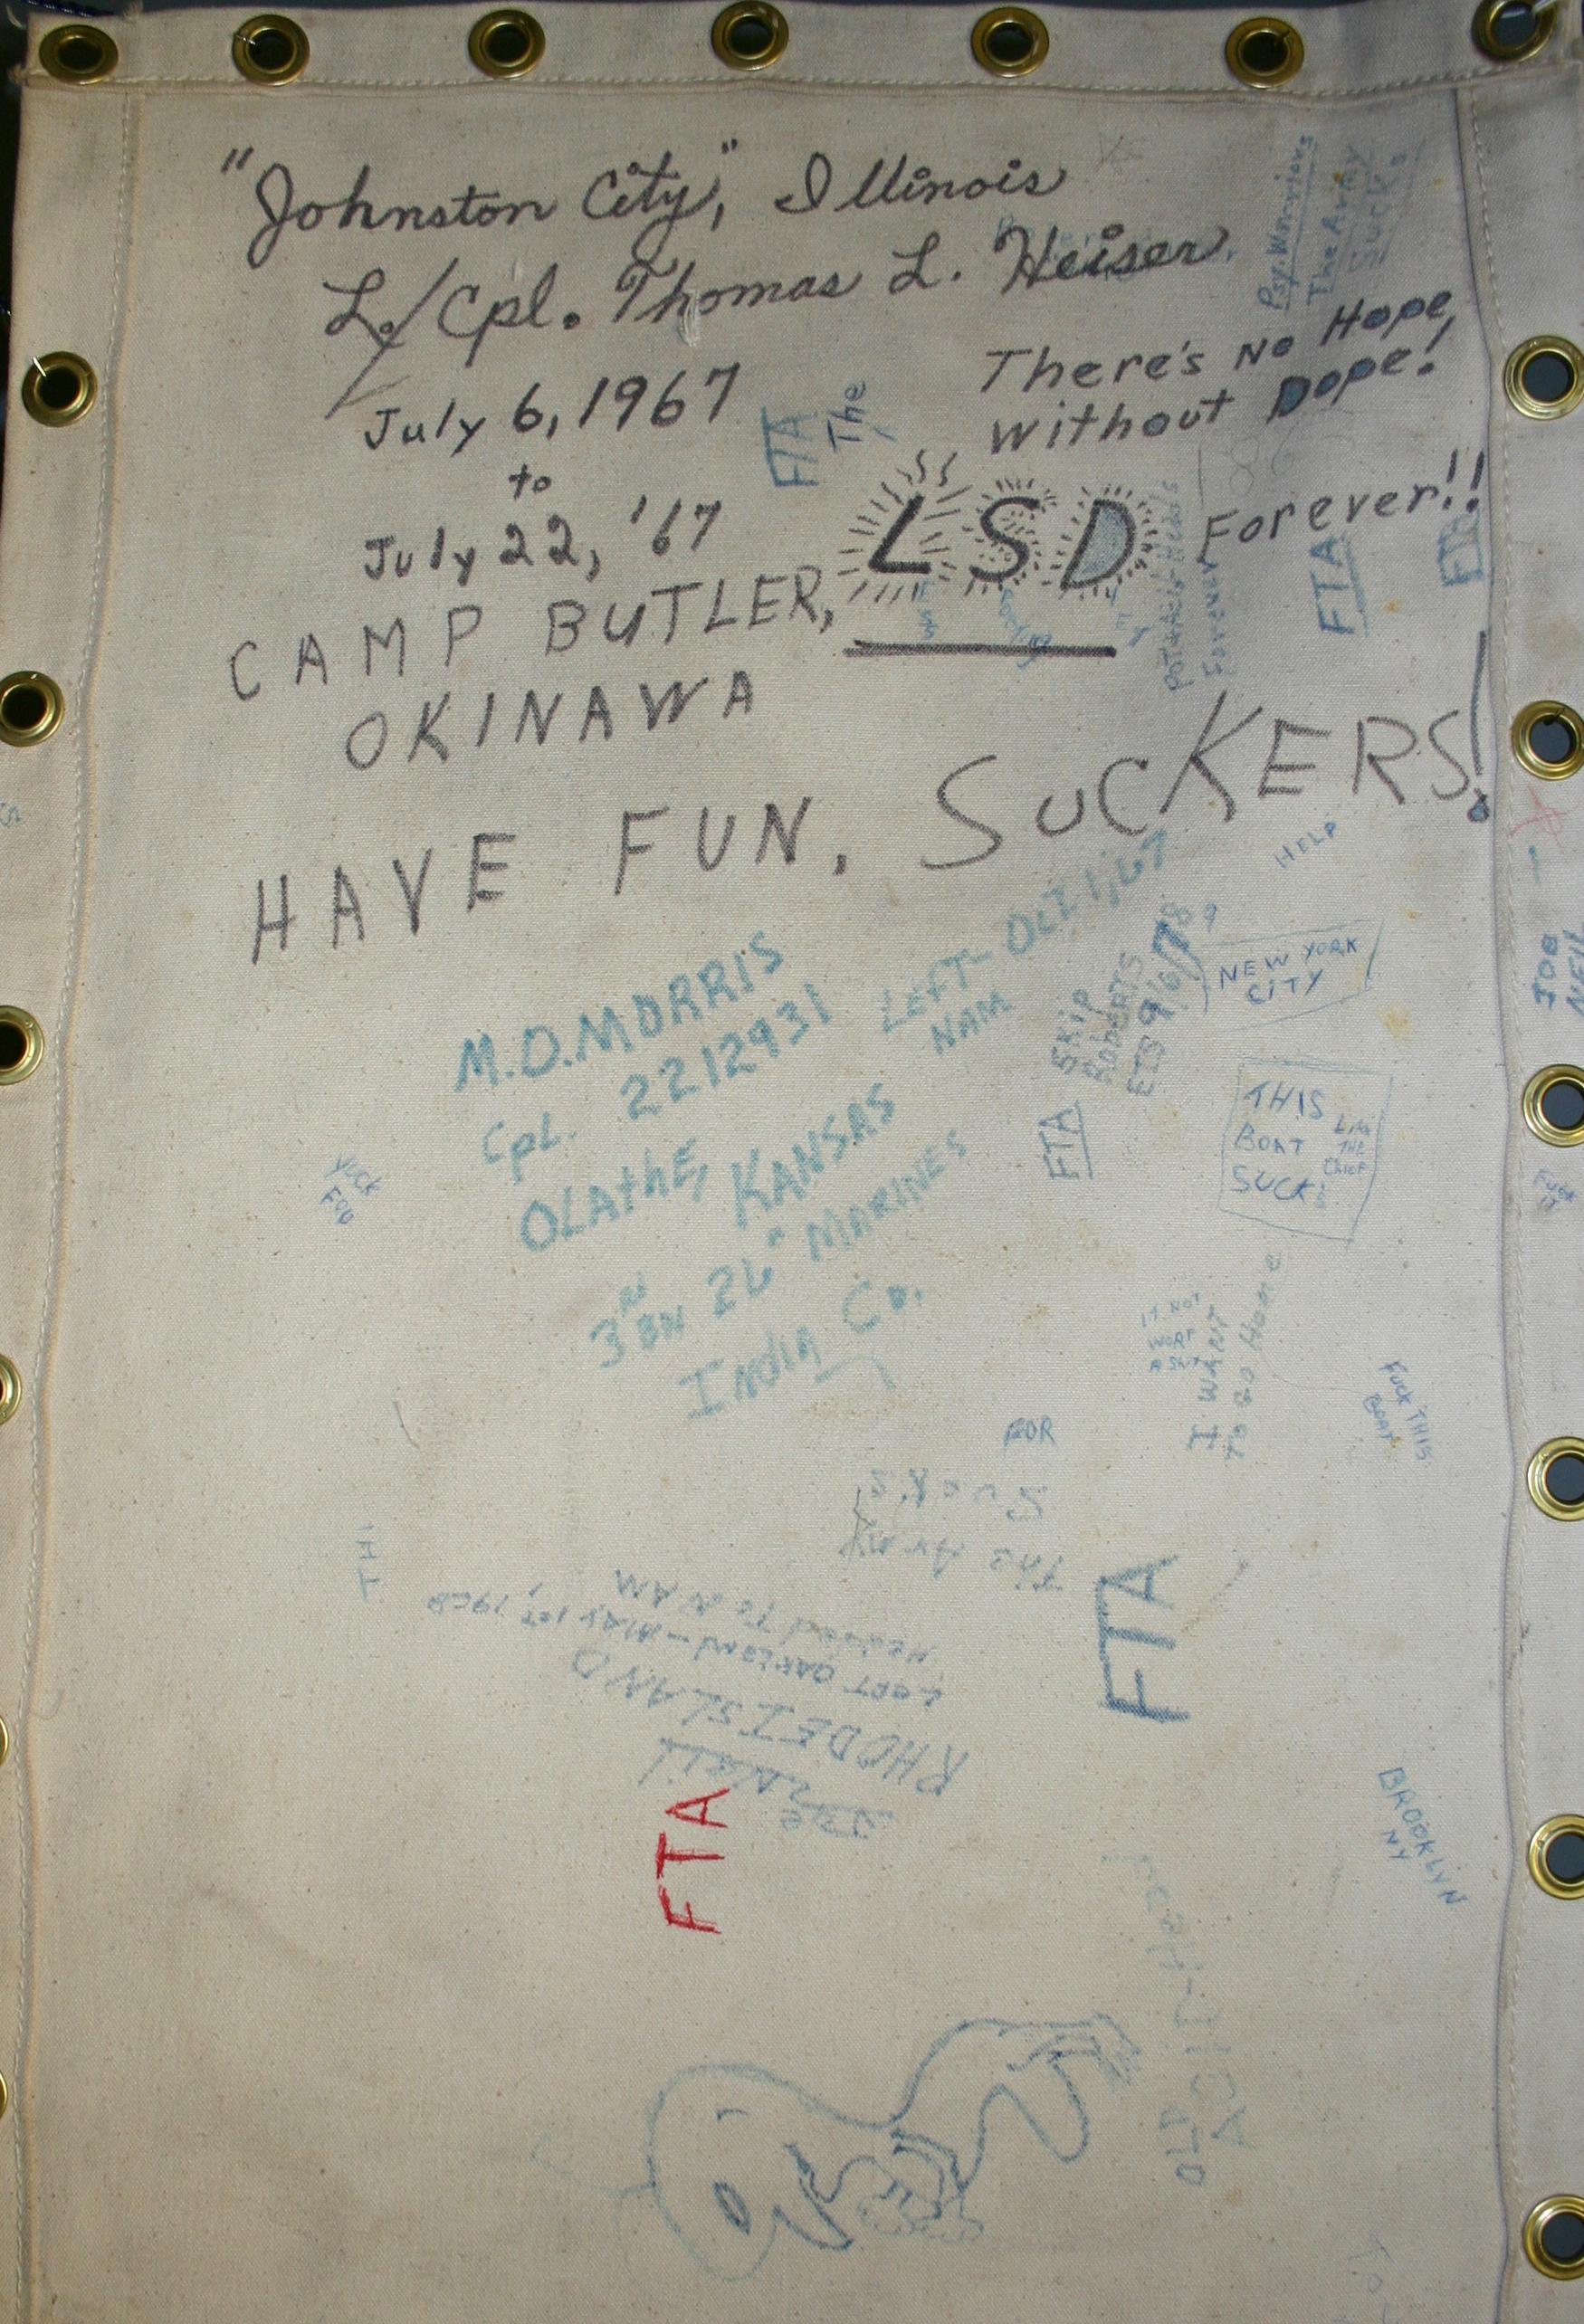 "Johnston City," Illinois
L/Cpl. Thomas L. Heiser
July 6, 1967
to
July 22, '67
CAMP BUTLER,
OKINAWA
HAVE FUN, SUCKERS!
Psy. Warriors
The Army
Sucks
There's No Hope
Without Dope!
FTA
The
LSD Forever!!
FTA
FTA
HELP
M.D. MORRIS
Cpl. 2212931
OLAthE, KANSAS
3RD BN 26" MARINES
India Co.
LEFT- OCT 1, 67
NAM
SKIP
RobERTS
ETS 9/6/78
9
NEW YORK
CITY
JOE
NEIL
FTA
THIS
BOAT
SUCKS
Like
THE
Chief
YUCK
FOU
IT NOT
WORT
A SHIT
I WANT
To Go Home
FUCK THIS
BOAT
FOR
The Army
Sucks
THI
FTA
Joe
Neil
RHODE ISLAND
LEFT OAKLAND - MAY 1st, 1968
Headed To NAM
FTA
BROOKLYN
NY
OLD
ACID-HEAD